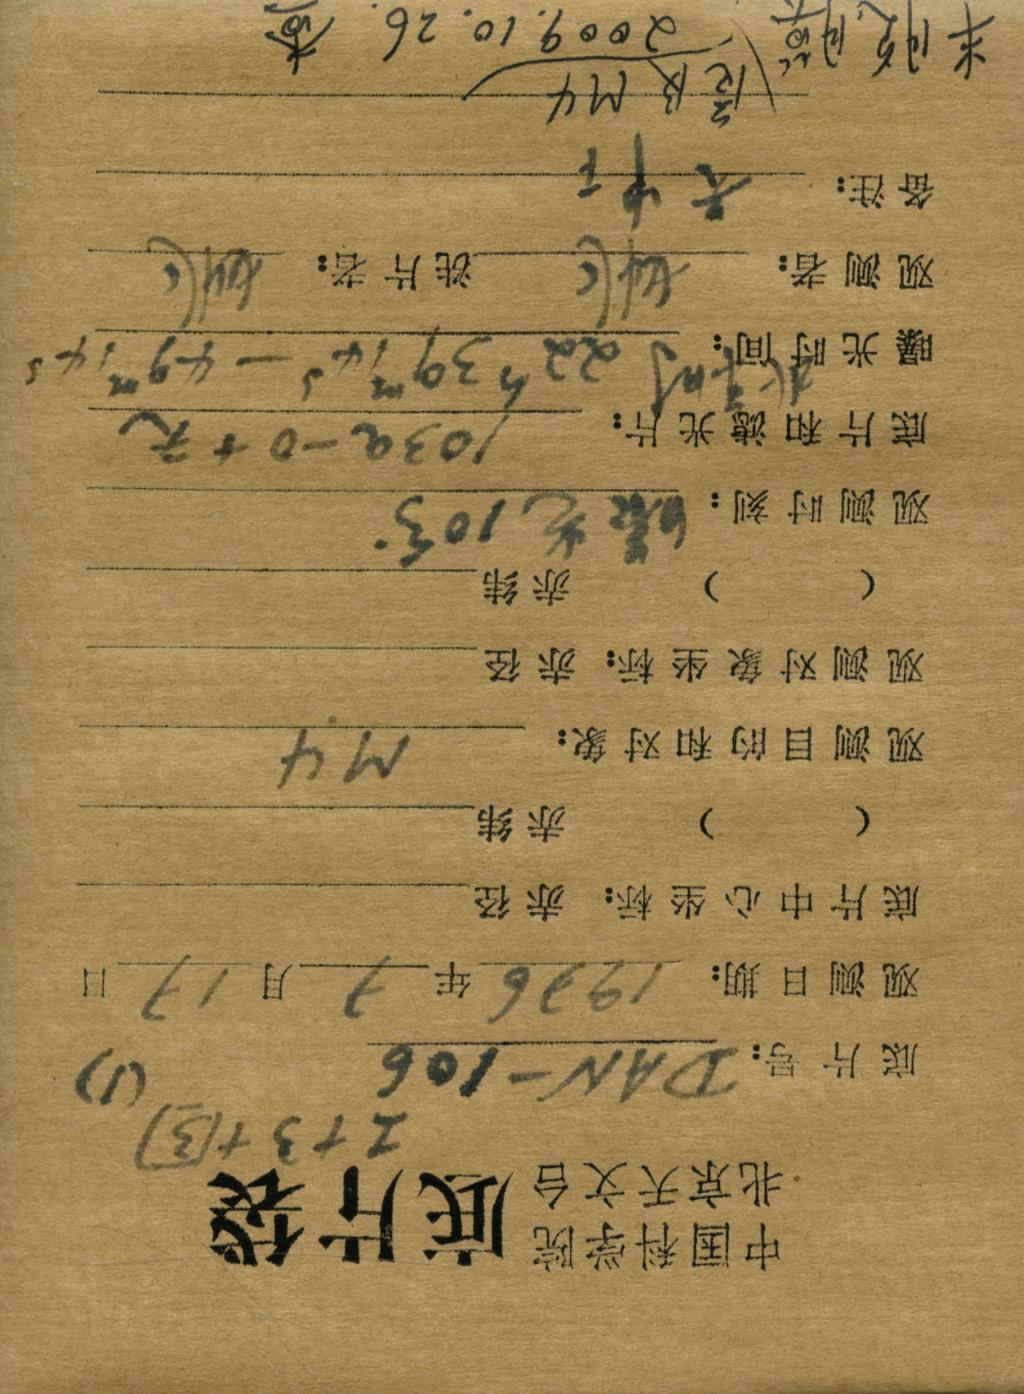 中国科学院
北京天文台
底片袋
I+3+(3)
底片号: DAN-106 (1)
观测日期: 1976年7月17日
底片中心坐标: 赤径
( ) 赤纬
观测目的和对象: M4
观测对象坐标: 赤径
( ) 赤纬
观测时刻: 曝光10分
底片和滤光片: 103a-O+无
曝光时间: 北京时 22h39m14s-49m14s
观测者: 洗片者:
备注:
M4
2009.10.26. 查